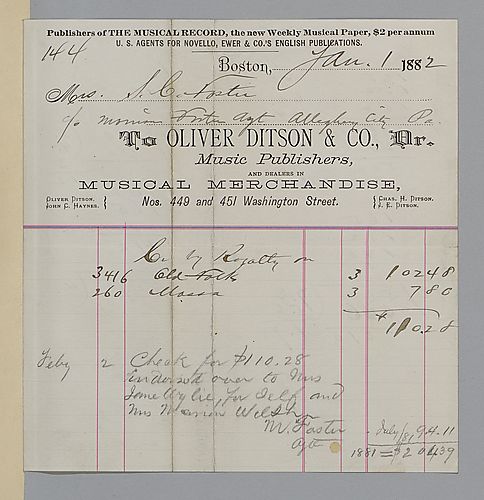 Publishers of THE MUSICAL RECORD, the new Weekly Musical Paper, $2 per annum
U. S. AGENTS FOR NOVELLO, EWER & CO.'S ENGLISH PUBLICATIONS.
144
Boston, Jan. 1 1882
Mrs. S. C. Foster
c/o Morrison Foster Agt Allegheny City Pa.
To OLIVER DITSON & CO., Dr.
Music Publishers,
AND DEALERS IN
MUSICAL MERCHANDISE,
OLIVER DITSON.
JOHN C. HAYNES.
Nos. 449 and 451 Washington Street.
CHAS. H. DITSON.
J. E. DITSON.
Cr. by Royalty on
3416 Old Folks 3 10248
260 Massa 3 780
$110.28
Feby 2 Check for $110.28
Endorsed over to Mrs
Jane Wylie, for Self and
Mrs Marion Welsh
M. Foster
Agt
July 1/81 94.11
1881 = $204.39